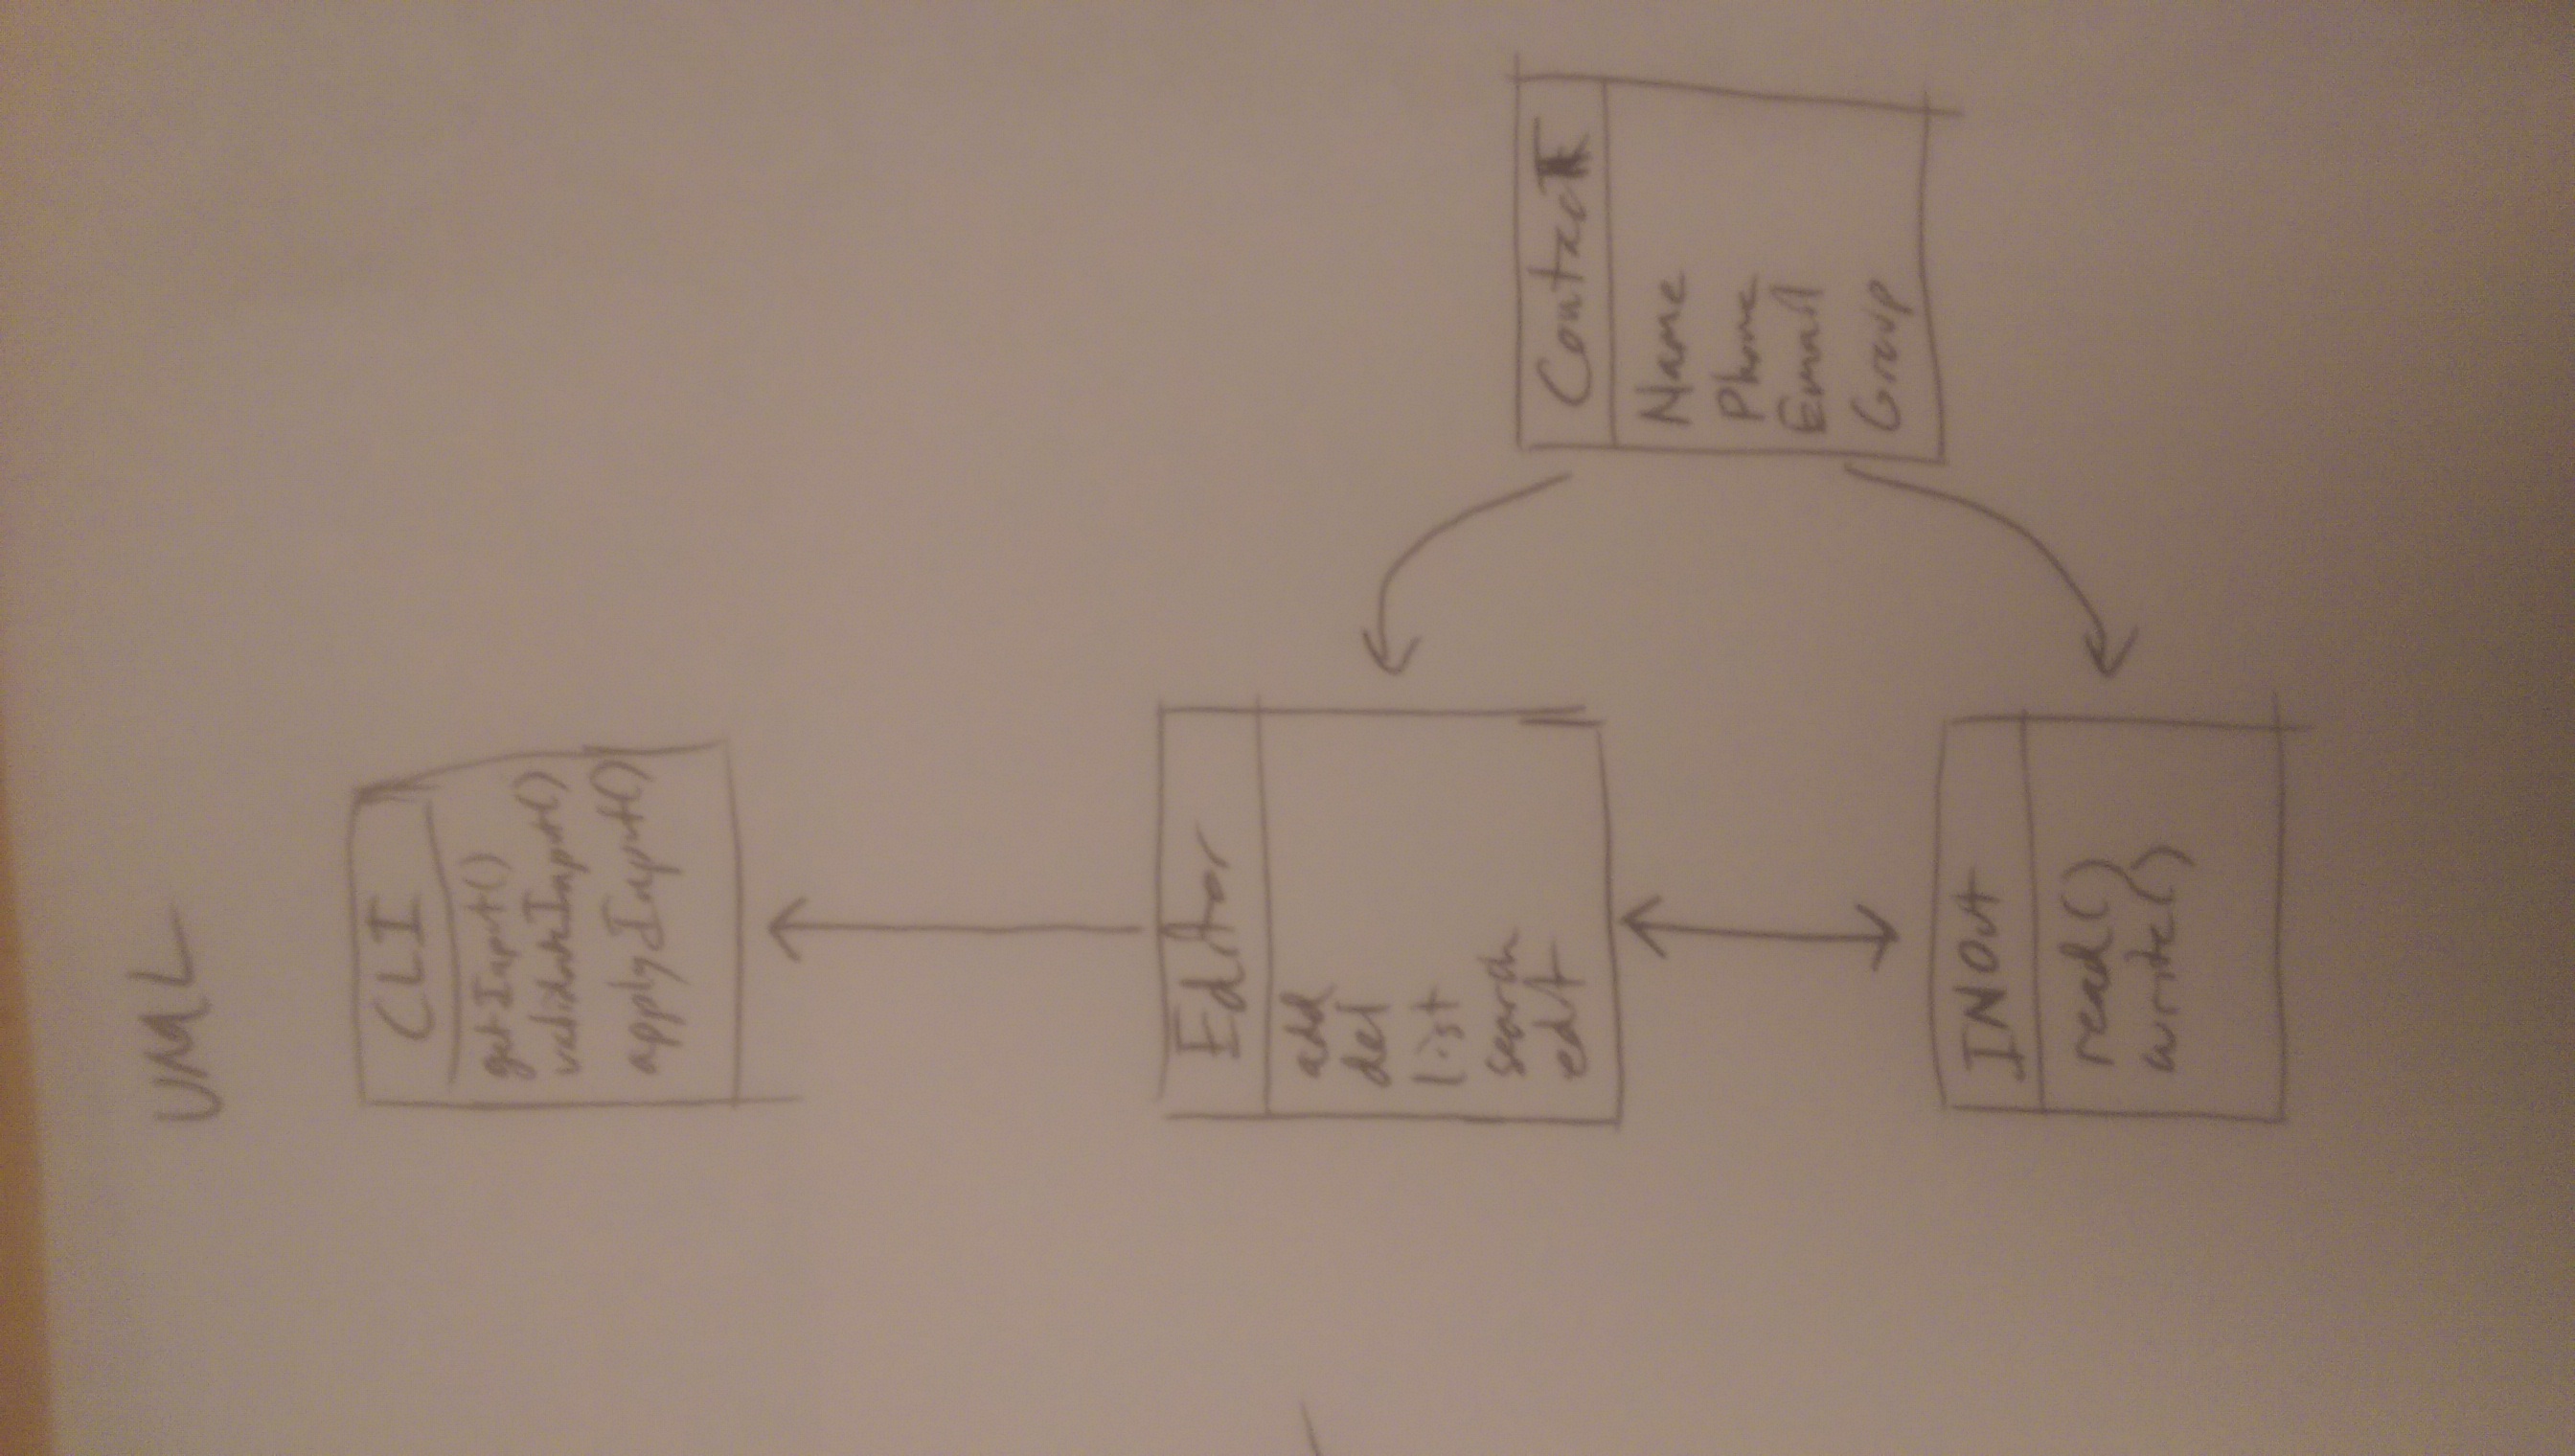 UML
CLI
getInput()
validateInput()
applyInput()
Editor
add
del
list
search
edit
Contact
Name
Phone
Email
Group
INOut
read()
write()